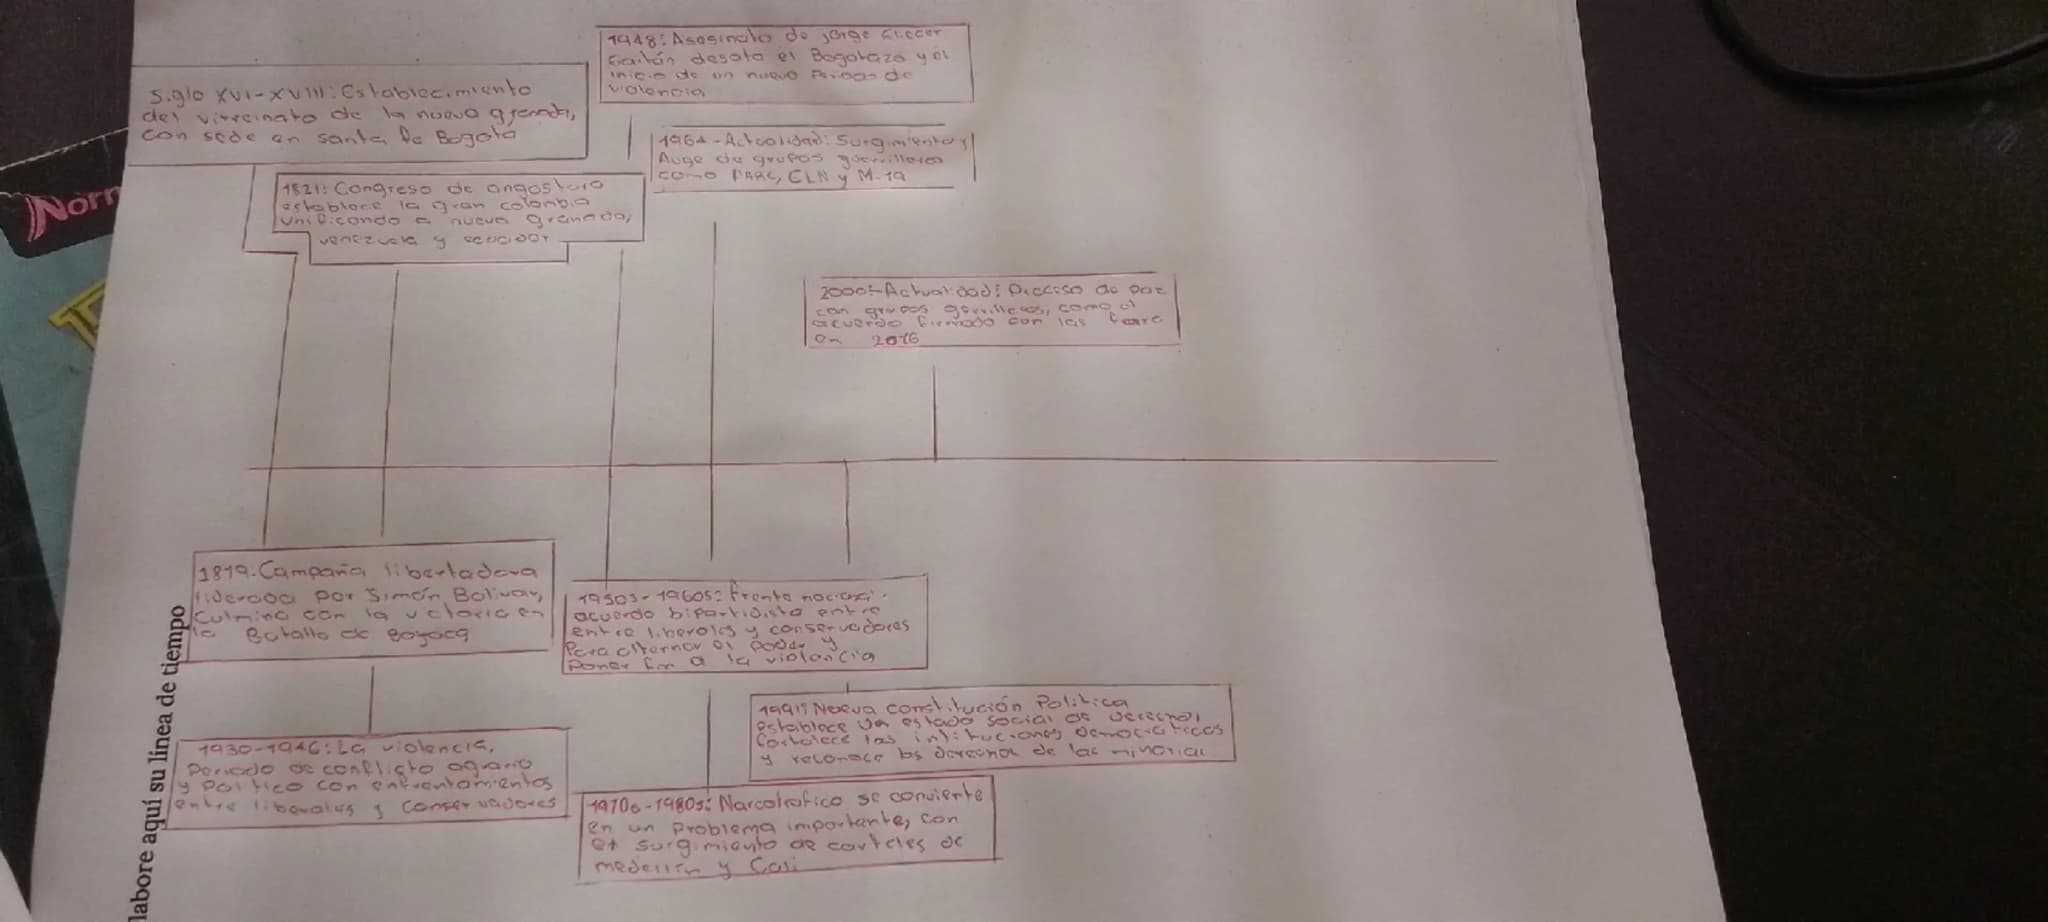 Siglo XVI-XVIII: Establecimiento
del virreinato de la nuevo grenada,
con sede en santa fe Bogota
1948: Asesinato de jorge Eliecer
Gaitán desata el Bogotazo y el
inicio de un nuevo Periodo de
violencia
1964-Actualidad: Surgimiento y
Auge de grupos guerrilleros
como FARC, ELN y M-19
1821: Congreso de angostura
establece la gran colombia
unificando a nueva granada,
venezuela y ecuador
2000:-Actualidad: Proceso de paz
con grupos gerrilleros, como el
acuerdo firmado con las farc
en 2016
1819. Campaña libertadora
liderada por Simón Bolivar,
Culmina con la victoria en
la Batalla de Boyaca
1950s-1960s: Frente nacional.
acuerdo bipartidista entre
entre liberales y conservadores
Para alternar el poder y
Poner fin a la violencia
1991: Nueva constitución Politica
establece un estado social de derecho,
fortalece las intituciones democráticas
y reconoce los derechos de las minorias
1930-1946: La violencia,
Periodo de conflicto agrario
y Politico con enfrentamientos
entre liberales y conservadores
1970s-1980s: Narcotrafico se convierte
en un problema importante, con
el surgimiento de carteles de
medellin y Cali
labore aquí su línea de tiempo
Norm